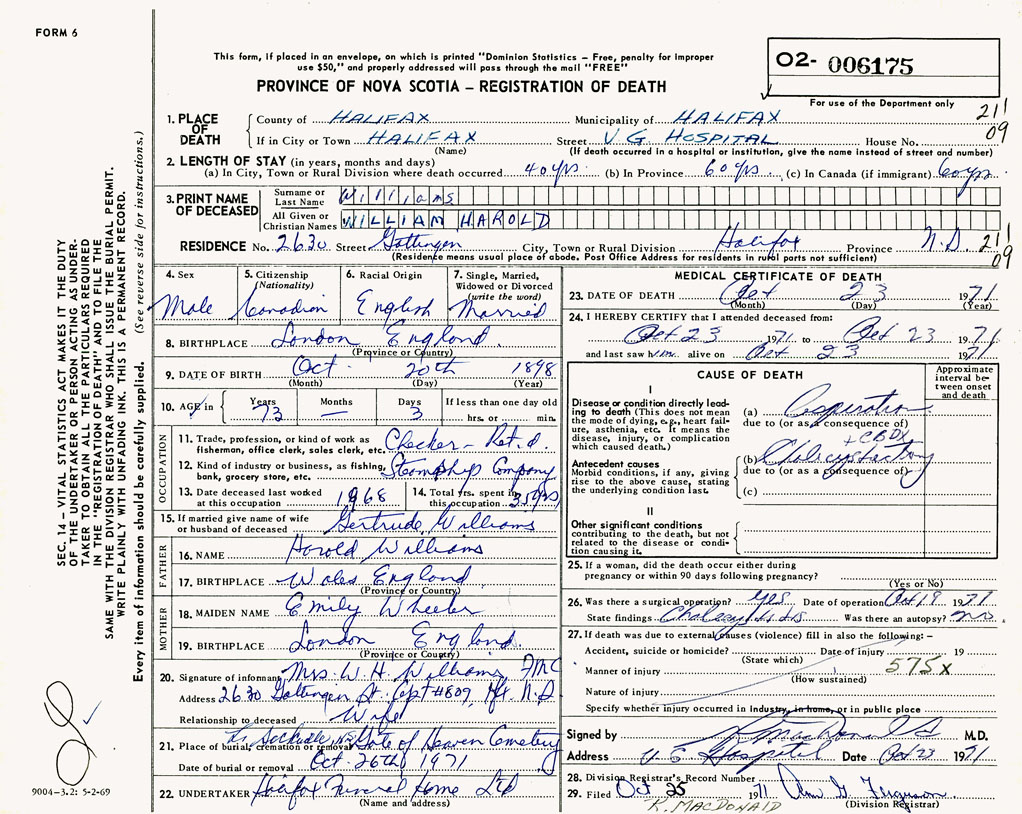 FORM 6
This form, if placed in an envelope, on which is printed "Dominion Statistics – Free, penalty for improper
use $50," and properly addressed will pass through the mail "FREE"
PROVINCE OF NOVA SCOTIA – REGISTRATION OF DEATH
02- 006175
For use of the Department only
211
09
1. PLACE OF DEATH
County of HALIFAX Municipality of HALIFAX
If in City or Town HALIFAX Street V.G. HOSPITAL House No.
(Name) (If death occurred in a hospital or institution, give the name instead of street and number)
2. LENGTH OF STAY (in years, months and days)
(a) In City, Town or Rural Division where death occurred 40 yrs (b) In Province 60 yrs (c) In Canada (if immigrant) 60 yrs
3. PRINT NAME OF DECEASED
Surname or Last Name Williams
All Given or Christian Names WILLIAM HAROLD
RESIDENCE No. 2630 Street Gottingen City, Town or Rural Division Halifax Province N.S. 211
09
(Residence means usual place of abode. Post Office Address for residents in rural parts not sufficient)
4. Sex 5. Citizenship (Nationality) 6. Racial Origin 7. Single, Married, Widowed or Divorced (write the word)
Male Canadian English Married
8. BIRTHPLACE London England
(Province or Country)
9. DATE OF BIRTH Oct 20th 1898
(Month) (Day) (Year)
10. AGE in Years Months Days If less than one day old
73 — 3 hrs. or min.
OCCUPATION
11. Trade, profession, or kind of work as fisherman, office clerk, sales clerk, etc. Checker – Ret'd.
12. Kind of industry or business, as fishing, bank, grocery store, etc. Steamship Company
13. Date deceased last worked at this occupation 1968
14. Total yrs. spent in this occupation 35 yrs
15. If married give name of wife or husband of deceased Gertrude Williams
FATHER
16. NAME Harold Williams
17. BIRTHPLACE Wales England
(Province or Country)
MOTHER
18. MAIDEN NAME Emily Wheeler
19. BIRTHPLACE London England
(Province or Country)
20. Signature of informant Mrs. W. H. Williams
Address 2630 Gottingen St. Apt #809, Hfx. N.S.
Relationship to deceased Wife
21. Place of burial, cremation or removal Gate of Heaven Cemetery
Lr. Sackville, N.S.
Date of burial or removal Oct. 26th, 1971
22. UNDERTAKER Halifax Funeral Home Ltd
(Name and address)
MEDICAL CERTIFICATE OF DEATH
23. DATE OF DEATH Oct 23 1971
(Month) (Day) (Year)
24. I HEREBY CERTIFY that I attended deceased from:
Oct 23 1971 to Oct 23 1971
and last saw him alive on Oct 23 1971
CAUSE OF DEATH
Approximate interval between onset and death
I
Disease or condition directly leading to death (This does not mean the mode of dying, e.g., heart failure, asthenia, etc. It means the disease, injury, or complication which caused death.)
(a) Aspiration
due to (or as a consequence of)
+ CBDX
(b) Cholecystectomy
due to (or as a consequence of)
Antecedent causes
Morbid conditions, if any, giving rise to the above cause, stating the underlying condition last.
(c)
II
Other significant conditions
contributing to the death, but not related to the disease or condition causing it.
25. If a woman, did the death occur either during
pregnancy or within 90 days following pregnancy?
(Yes or No)
26. Was there a surgical operation? yes Date of operation Oct 19 1971
State findings Was there an autopsy? no
27. If death was due to external causes (violence) fill in also the following: –
Accident, suicide or homicide? Date of injury 19
(State which)
Manner of injury 575x
(How sustained)
Nature of injury
Specify whether injury occurred in Industry, in home, or in public place
Signed by MacDonald M.D.
Address V G Hospital Date Oct 23 1971
28. Division Registrar's Record Number
29. Filed Oct 25 1971 Ferguson
(Division Registrar)
K. MACDONALD
SEC. 14 – VITAL STATISTICS ACT MAKES IT THE DUTY
OF THE UNDERTAKER OR PERSON ACTING AS UNDER-
TAKER TO OBTAIN ALL THE PARTICULARS REQUIRED
IN THE "REGISTRATION OF DEATH" AND TO FILE THE
SAME WITH THE DIVISION REGISTRAR WHO SHALL ISSUE THE BURIAL PERMIT.
WRITE PLAINLY WITH UNFADING INK. THIS IS A PERMANENT RECORD.
Every item of information should be carefully supplied. (See reverse side for instructions.)
9004-3.2: 5-2-69